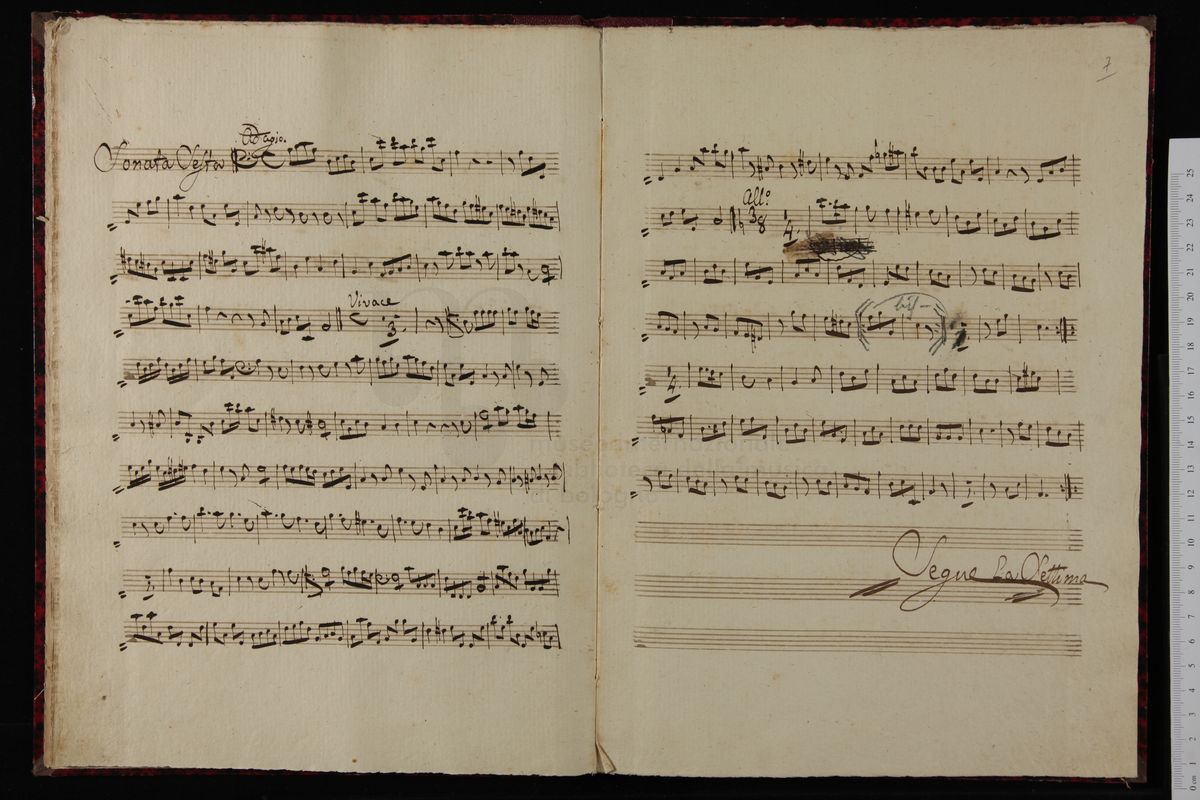 Adagio.
Sonata Sesta
Vivace
3
7
All.º
3/8
4.
bis
4.
Segue La Settima
museo internazionale
biblioteca della musica
di bologna
25 24 23 22 21 20 19 18 17 16 15 14 13 12 11 10 9 8 7 6 5 4 3 2 1 0 cm